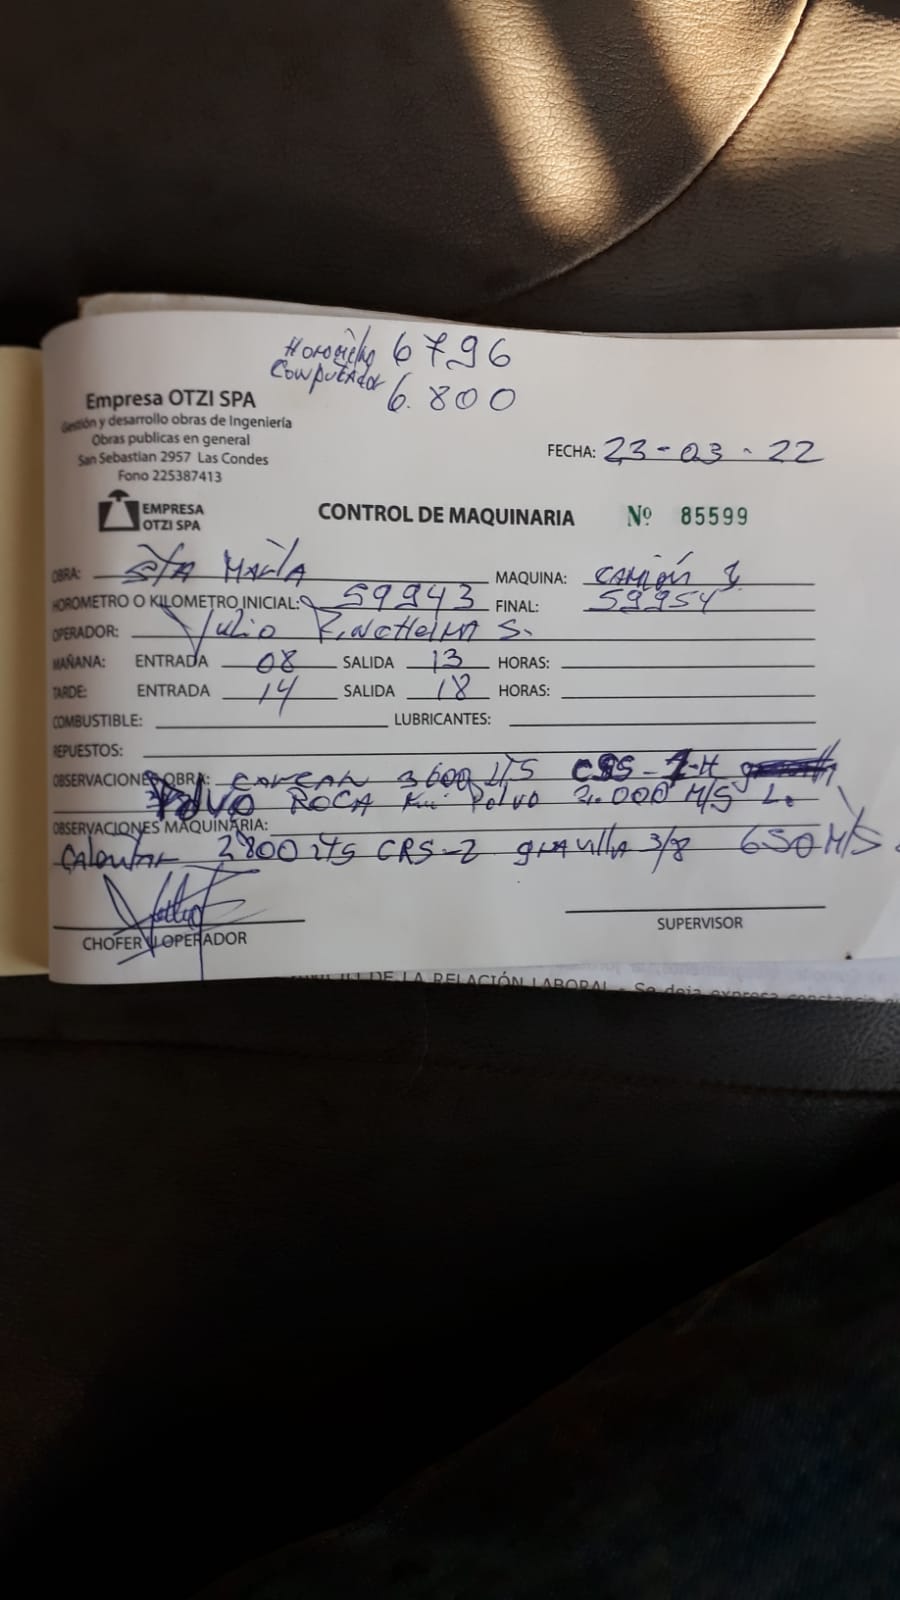 Horometro 6796
Computador 6.800
Empresa OTZI SPA
Gestión y desarrollo obras de Ingeniería
Obras publicas en general
San Sebastian 2957 Las Condes
Fono 225387413
FECHA: 23-03-22
EMPRESA
OTZI SPA
CONTROL DE MAQUINARIA Nº 85599
OBRA: STA MARIA MAQUINA: CAMIÓN
HOROMETRO O KILOMETRO INICIAL: 59943 FINAL: 59954
OPERADOR: Julio S.
MAÑANA: ENTRADA 08 SALIDA 13 HORAS:
TARDE: ENTRADA 14 SALIDA 18 HORAS:
COMBUSTIBLE: LUBRICANTES:
REPUESTOS:
OBSERVACIONES OBRA: 3600 LTS CSS-1-H
Polvo ROCA Polvo 2.000 M/S
OBSERVACIONES MAQUINARIA:
Calentar 2800 LTS CRS-2 gravilla 3/8 650 M/S
CHOFER U OPERADOR
SUPERVISOR
DE LA RELACIÓN LABORAL.- Se deja expresa constancia